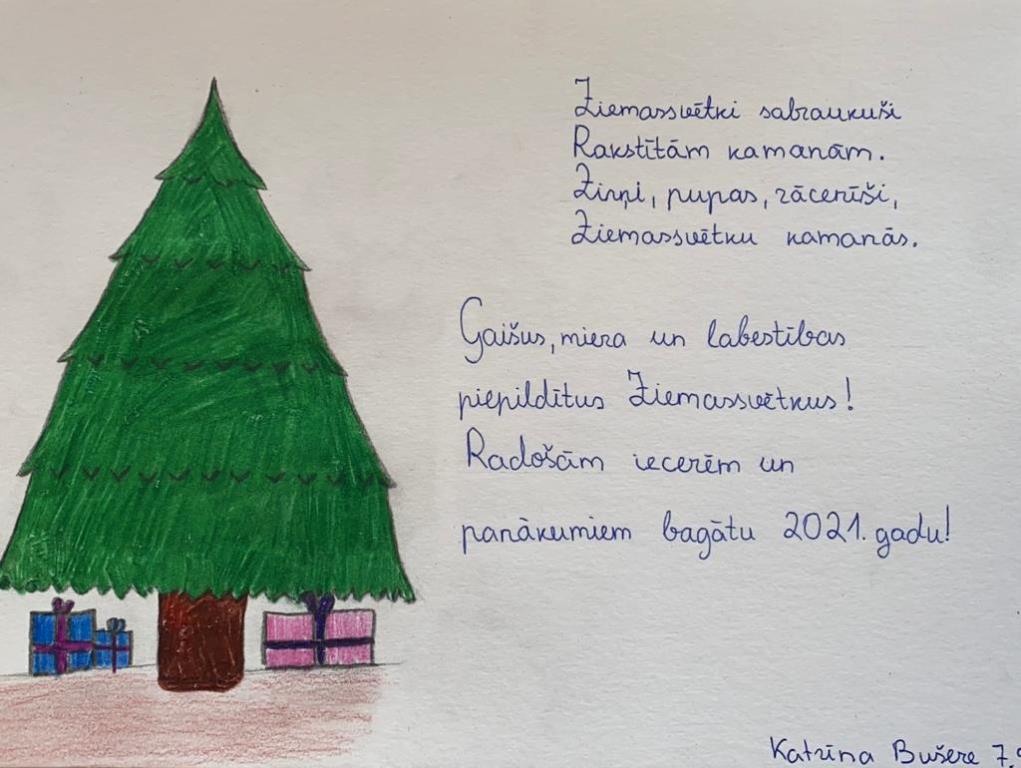 Ziemassvētki sabraukuši
Rakstītām kamanām.
Zirņi, pupas, rācenīši,
Ziemassvētku kamanās.
Gaišus, miera un labestības
piepildītus Ziemassvētkus!
Radošām iecerēm un
panākumiem bagātu 2021. gadu!
Katrīna Bušere 7.